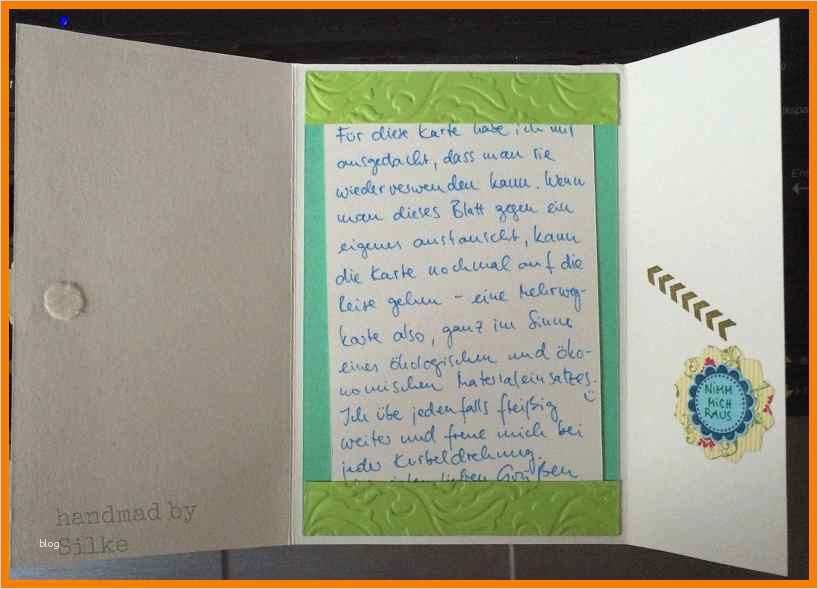 Für diese Karte habe ich mir
ausgedacht, dass man sie
wiederverwenden kann. Wenn
man dieses Blatt gegen ein
eigenes austauscht, kann
die Karte nochmal auf die
Reise gehen – eine Mehrweg-
karte also, ganz im Sinne
eines ökologischen und öko-
nomischen Materialeinsatzes.
Ich übe jedenfalls fleißig
weiter und freue mich bei
jeder Kurbeldrehung.
lieben Grüßen
NIMM
MICH
RAUS
handmad by
Silke
blog